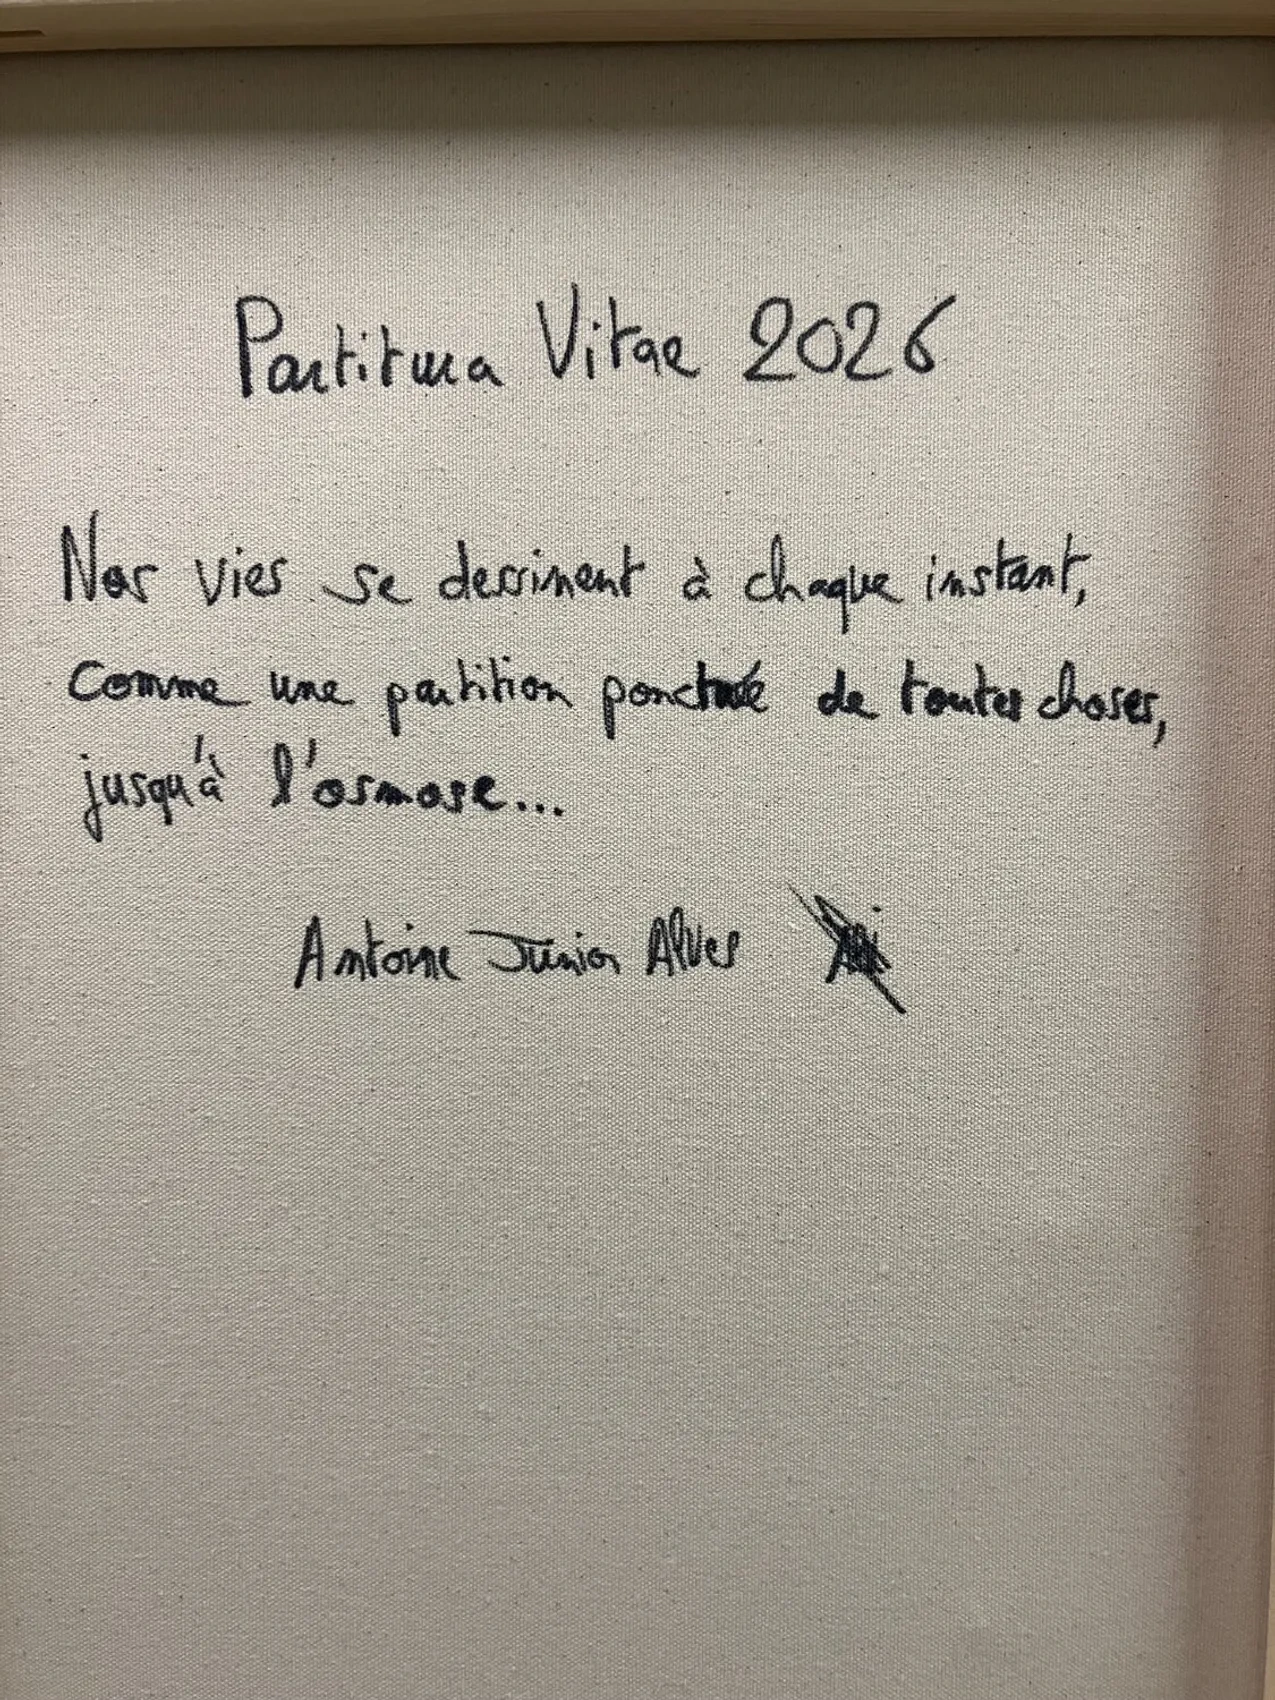 Partitura Vitae 2026
Nos vies se dessinent à chaque instant,
Comme une partition ponctuée de toutes choses,
jusqu'à l'osmose...
Antoine Junior Alves